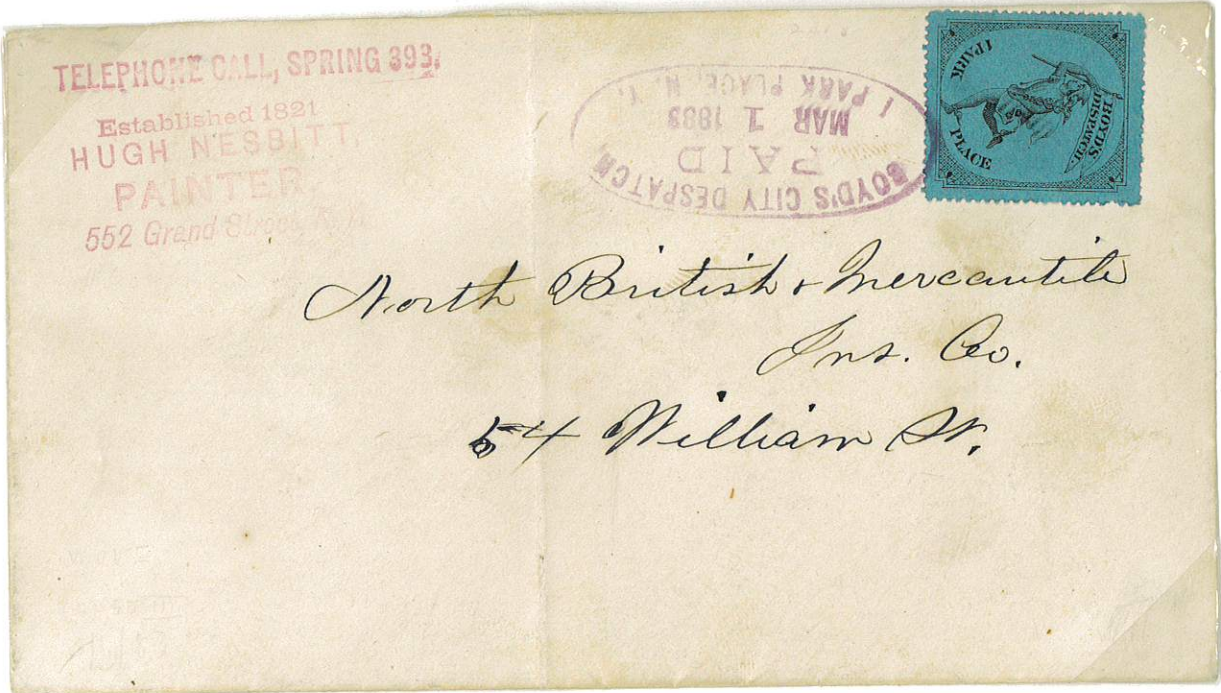 TELEPHONE CALL, SPRING 393.
Established 1821
HUGH NESBITT,
PAINTER.
552 Grand Street, N.Y.
BOYD'S CITY DESPATCH,
PAID
MAR 1 1883
1 PARK PLACE, N. Y.
BOYD'S
DISPATCH.
1 PARK
PLACE
North British & Mercantile
Ins. Co.
54 William St.